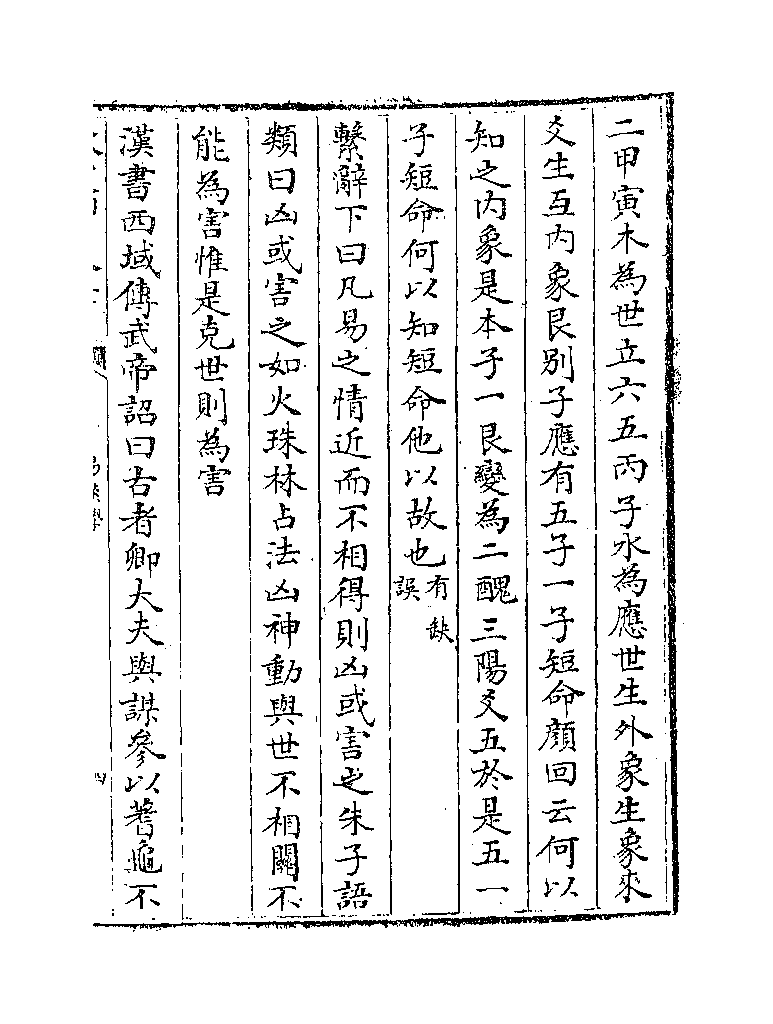 二甲寅木為世立六五丙子水為應世生外象生象來
爻生互內象艮别子應有五子一子短命顔回云何以
知之内象是本子一艮變為二醜三陽爻五於是五一
子短命何以知短命他以故也有缺誤
繫辭下曰凡易之情近而不相得則凶或害之朱子語
類曰凶或害之如火珠林占法凶神動與世不相關不
能為害惟是克世則為害
漢書西域傳武帝詔曰古者卿大夫與謀參以蓍龜不